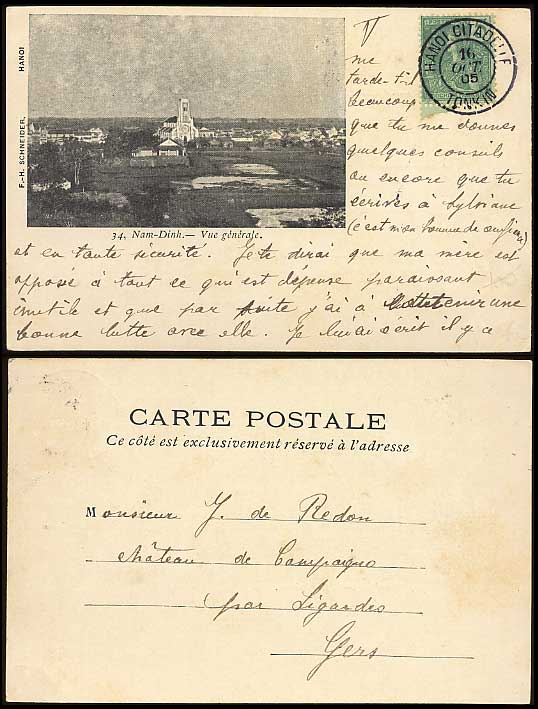 F.-H. SCHNEIDER, HANOI
HANOI CITADELLE
16
OCT
05
TONKIN
T
34. Nam-Dinh.— Vue générale.
me
tarde-t-il
beaucoup
que tu me donnes
quelques conseils
ou encore que tu
écrives à Sylviane
(c'est mon homme de confiance)
et en toute sécurité. Je te dirai que ma mère est
opposée à tout ce qui est dépense paraissant
inutile et que par suite j'ai à soutenir une
bonne lutte avec elle. Je lui ai écrit il y a
CARTE POSTALE
Ce côté est exclusivement réservé à l'adresse
Monsieur J. de Redon
château de Campaigno
par Ligardes
Gers